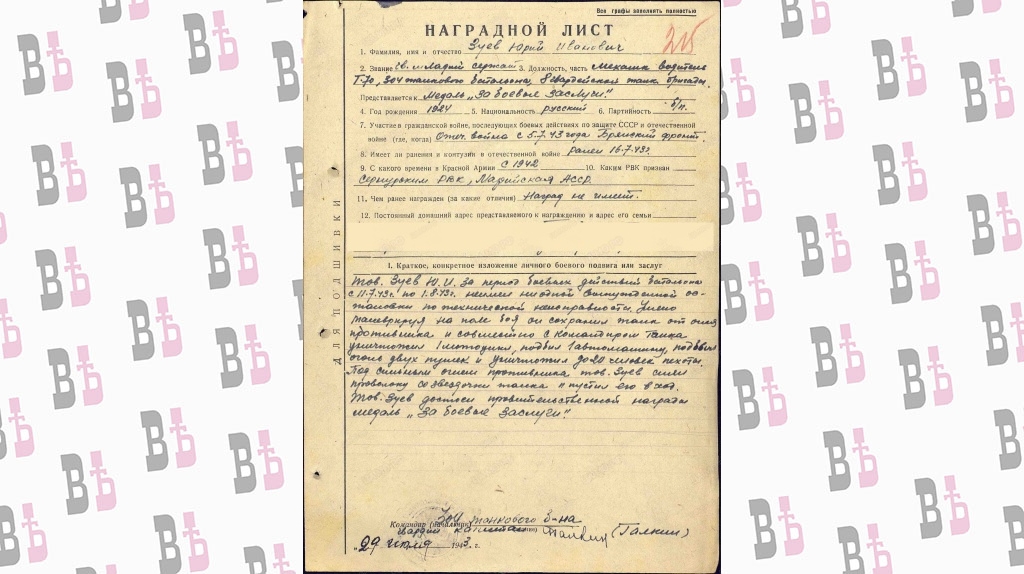 Все графы заполнять полностью
НАГРАДНОЙ ЛИСТ
215
1. Фамилия, имя и отчество Зуев Юрий Иванович
2. Звание Гв. младший сержант 3. Должность, часть механик водитель
Т-70, 304 танкового батальона, гвардейская танк. бригады
Представляется к Медаль „За боевые заслуги."
4. Год рождения 1924 5. Национальность русский 6. Партийность б/п.
7. Участие в гражданской войне, последующих боевых действиях по защите СССР и отечественной
войне (где, когда) Отеч. война с 5.7.43 года Брянский фронт.
8. Имеет ли ранения и контузии в отечественной войне ранен 16.7.43г.
9. С какого времени в Красной Армии с 1942 10. Каким РВК призван
Сернурским РВК, Марийская АССР
11. Чем ранее награжден (за какие отличия) Наград не имеет.
12. Постоянный домашний адрес представляемого к награждению и адрес его семьи
ДЛЯ ПОДШИВКИ
I. Краткое, конкретное изложение личного боевого подвига или заслуг
Тов. Зуев Ю.И. за период боевых действий батальона
с 11.7.43г. по 1.8.43г. не имел ни одной вынужденной ос-
тановки по технической неисправности. Умело
маневрируя на поле боя он сохранил танк от огня
противника и совместно с командиром танка
уничтожил 1 мотоцикл, подбил 1 автомашину, подавил
огонь двух пушек и уничтожил до 20 человек пехоты.
Под сильным огнем противника тов. Зуев снял
проволоку со звездочки танка и пустил его в ход.
Тов. Зуев достоин правительственной награды
медаль „За боевые заслуги."
Командир (начальник) 304 танкового б-на
гвардии капитан Галкин (Галкин)
„29" июля 1943 г.
ВѢ